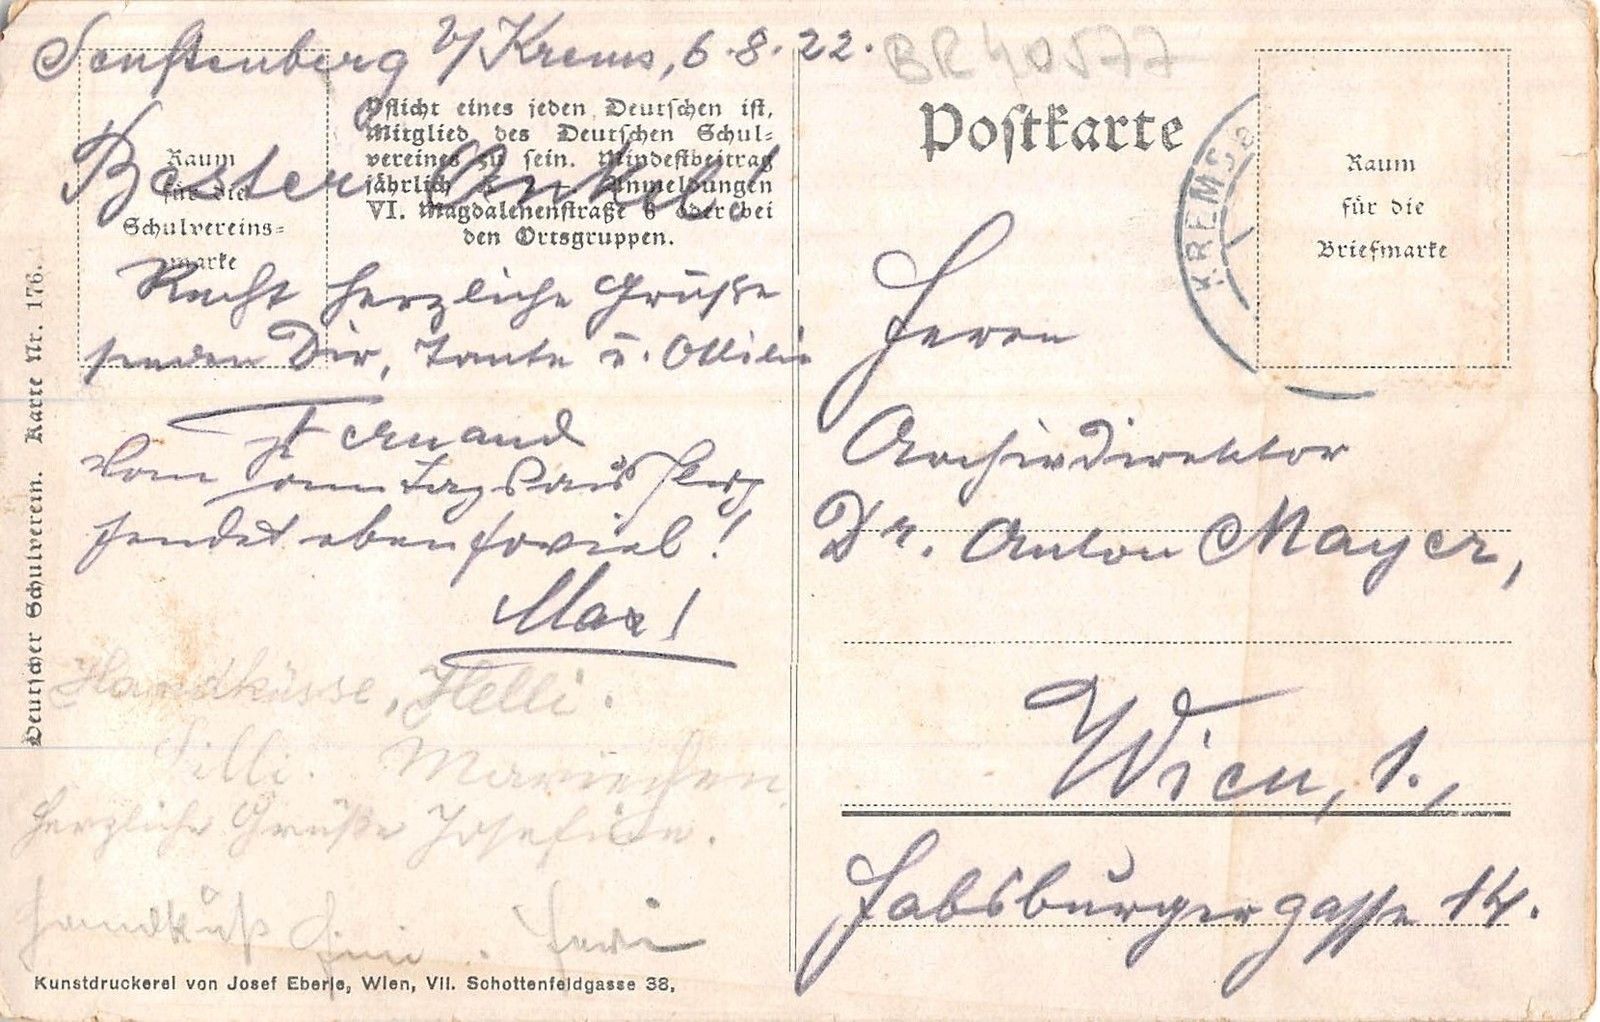 Senftenberg b/Krems, 6.8.22.
BR 40577
Bester Onkel!
Raum
für die
Schulvereins=
marke
Pflicht eines jeden Deutschen ist,
Mitglied des Deutschen Schul=
vereines zu sein. Mindestbeitrag
jährlich K Anmeldungen
VI. Magdalenenstraße 6 oder bei
den Ortsgruppen.
Recht herzliche Grüße
senden Dir, Tante u. Ottilie
Fernand
Vom
sendet ebensoviel!
Max!
Handküsse, Helli.
Lilli. Mariechen
herzliche Grüße Josefine.
Handkuß Fini.
Deutscher Schulverein. Karte Nr. 176.
Kunstdruckerei von Josef Eberle, Wien, VII. Schottenfeldgasse 38,
Postkarte
KREMS
Raum
für die
Briefmarke
Herrn
Archivdirektor
Dr. Anton Mayer,
Wien, 1.,
Habsburgergasse 14.